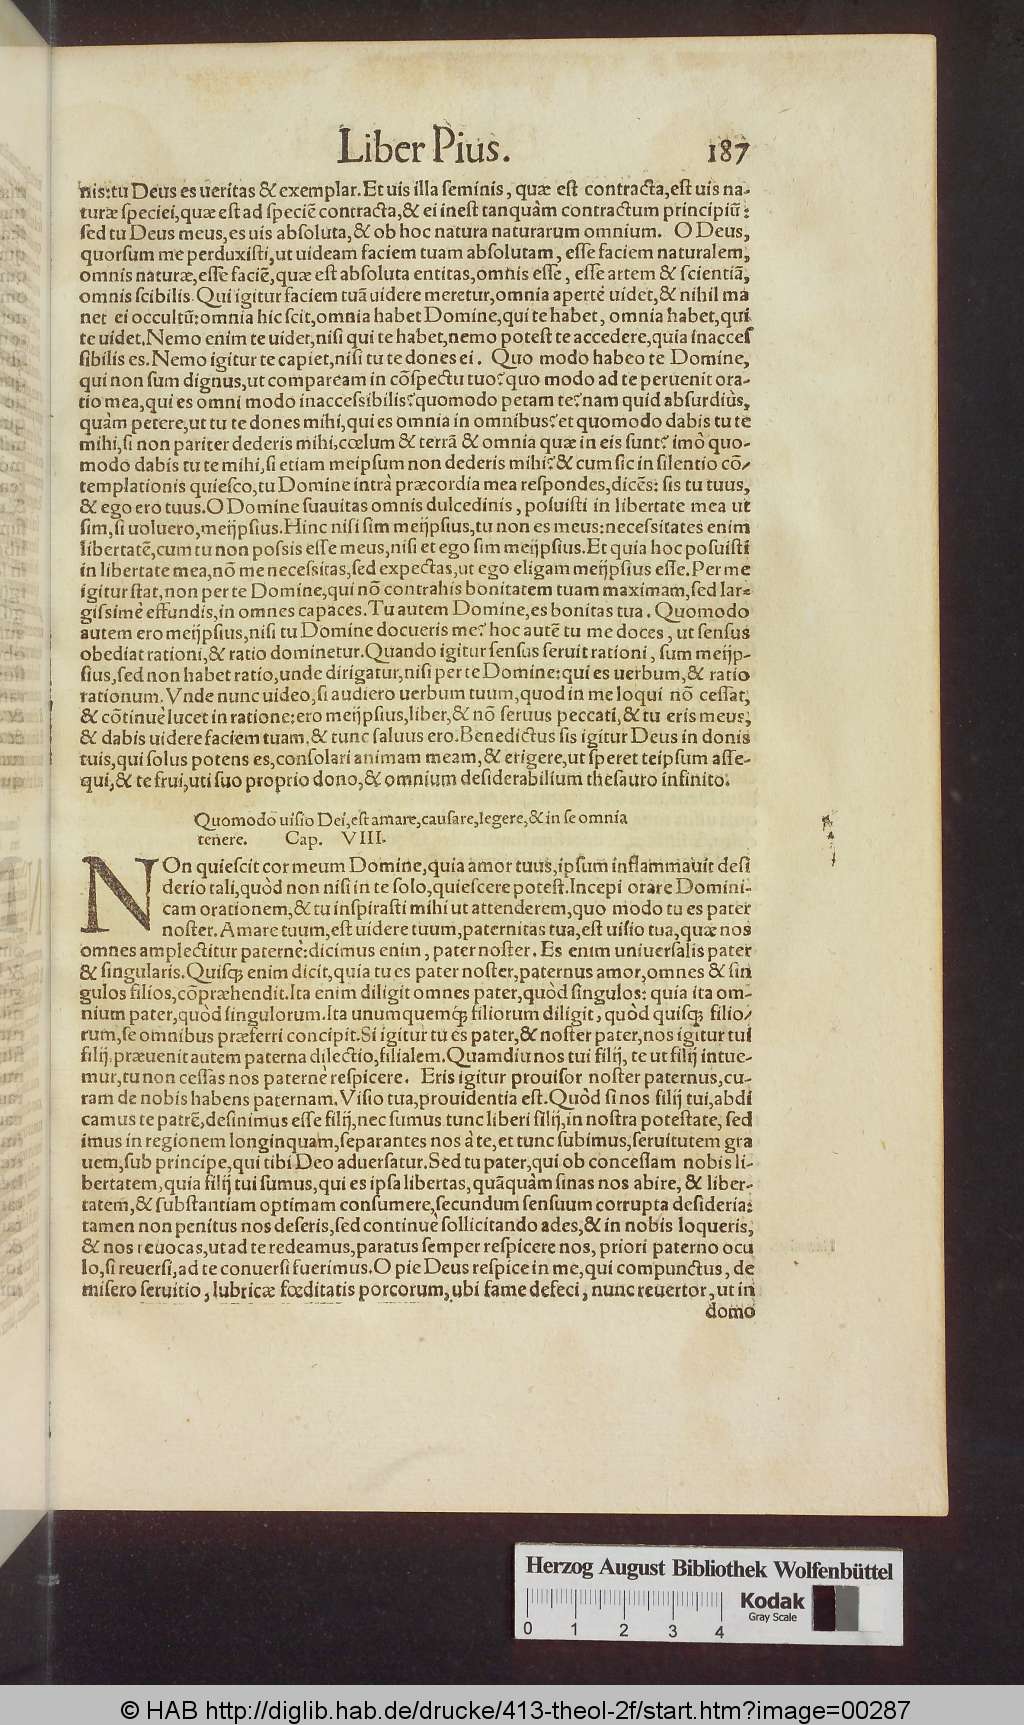 Liber Pius. 187
nis: tu Deus es ueritas & exemplar. Et uis illa seminis, quæ est contracta, est uis na-
turæ speciei, quæ est ad speciē contracta, & ei inest tanquàm contractum principiū:
sed tu Deus meus, es uis absoluta, & ob hoc natura naturarum omnium. O Deus,
quorsum me perduxisti, ut uideam faciem tuam absolutam, esse faciem naturalem,
omnis naturæ, esse faciē, quæ est absoluta entitas, omnis esse, esse artem & scientiā,
omnis scibilis. Qui igitur faciem tuā uidere meretur, omnia apertè uidet, & nihil ma
net ei occultū: omnia hic scit, omnia habet Domine, qui te habet, omnia habet, qui
te uidet. Nemo enim te uidet, nisi qui te habet, nemo potest te accedere, quia inacces
sibilis es. Nemo igitur te capiet, nisi tu te dones ei. Quo modo habeo te Domine,
qui non sum dignus, ut compaream in cōspectu tuo? quo modo ad te peruenit ora-
tio mea, qui es omni modo inaccessibilis? quomodo petam te? nam quid absurdiùs,
quàm petere, ut tu te dones mihi, qui es omnia in omnibus? et quomodo dabis tu te
mihi, si non pariter dederis mihi, cœlum & terrā & omnia quæ in eis sunt? imò quo-
modo dabis tu te mihi, si etiam meipsum non dederis mihi? & cum sic in silentio cō-
templationis quiesco, tu Domine intrà præcordia mea respondes, dicēs: sis tu tuus,
& ego ero tuus. O Domine suauitas omnis dulcedinis, posuisti in libertate mea ut
sim, si uoluero, meijpsius. Hinc nisi sim meijpsius, tu non es meus: necessitates enim
libertatē, cum tu non possis esse meus, nisi et ego sim meijpsius. Et quia hoc posuisti
in libertate mea, nō me necessitas, sed expectas, ut ego eligam meijpsius esse. Per me
igitur stat, non per te Domine, qui nō contrahis bonitatem tuam maximam, sed lar-
gissimè effundis, in omnes capaces. Tu autem Domine, es bonitas tua. Quomodo
autem ero meijpsius, nisi tu Domine docueris me? hoc autē tu me doces, ut sensus
obediat rationi, & ratio dominetur. Quando igitur sensus seruit rationi, sum meijp-
sius, sed non habet ratio, unde dirigatur, nisi per te Domine: qui es uerbum, & ratio
rationum. Vnde nunc uideo, si audiero uerbum tuum, quod in me loqui nō cessat,
& cōtinuè lucet in ratione: ero meijpsius, liber, & nō seruus peccati, & tu eris meus,
& dabis uidere faciem tuam, & tunc saluus ero. Benedictus sis igitur Deus in donis
tuis, qui solus potens es, consolari animam meam, & erigere, ut speret teipsum asse-
qui, & te frui, uti suo proprio dono, & omnium desiderabilium thesauro infinito.
Quomodo uisio Dei, est amare, causare, legere, & in se omnia
tenere. Cap. VIII.
NOn quiescit cor meum Domine, quia amor tuus, ipsum inflammauit desi
derio tali, quòd non nisi in te solo, quiescere potest. Incepi orare Domini-
cam orationem, & tu inspirasti mihi ut attenderem, quo modo tu es pater
noster. Amare tuum, est uidere tuum, paternitas tua, est uisio tua, quæ nos
omnes amplectitur paternè: dicimus enim, pater noster. Es enim uniuersalis pater
& singularis. Quisq; enim dicit, quia tu es pater noster, paternus amor, omnes & sin
gulos filios, cōpræhendit. Ita enim diligit omnes pater, quòd singulos: quia ita om-
nium pater, quòd singulorum. Ita unumquemq; filiorum diligit, quòd quisq; filio-
rum, se omnibus præferri concipit. Si igitur tu es pater, & noster pater, nos igitur tui
filij, præuenit autem paterna dilectio, filialem. Quamdiu nos tui filij, te ut filij intue-
mur, tu non cessas nos paternè respicere. Eris igitur prouisor noster paternus, cu-
ram de nobis habens paternam. Visio tua, prouidentia est. Quòd si nos filij tui, abdi
camus te patrē, desinimus esse filij, nec sumus tunc liberi filij, in nostra potestate, sed
imus in regionem longinquam, separantes nos à te, et tunc subimus, seruitutem gra
uem, sub principe, qui tibi Deo aduersatur. Sed tu pater, qui ob concessam nobis li-
bertatem, quia filij tui sumus, qui es ipsa libertas, quāquàm sinas nos abire, & liber-
tatem, & substantiam optimam consumere, secundum sensuum corrupta desideria:
tamen non penitus nos deseris, sed continuè sollicitando ades, & in nobis loqueris,
& nos reuocas, ut ad te redeamus, paratus semper respicere nos, priori paterno ocu
lo, si reuersi, ad te conuersi fuerimus. O pie Deus respice in me, qui compunctus, de
misero seruitio, lubricæ fœditatis porcorum, ubi fame defeci, nunc reuertor, ut in
domo
Herzog August Bibliothek Wolfenbüttel
Kodak
Gray Scale
0 1 2 3 4
© HAB http://diglib.hab.de/drucke/413-theol-2f/start.htm?image=00287